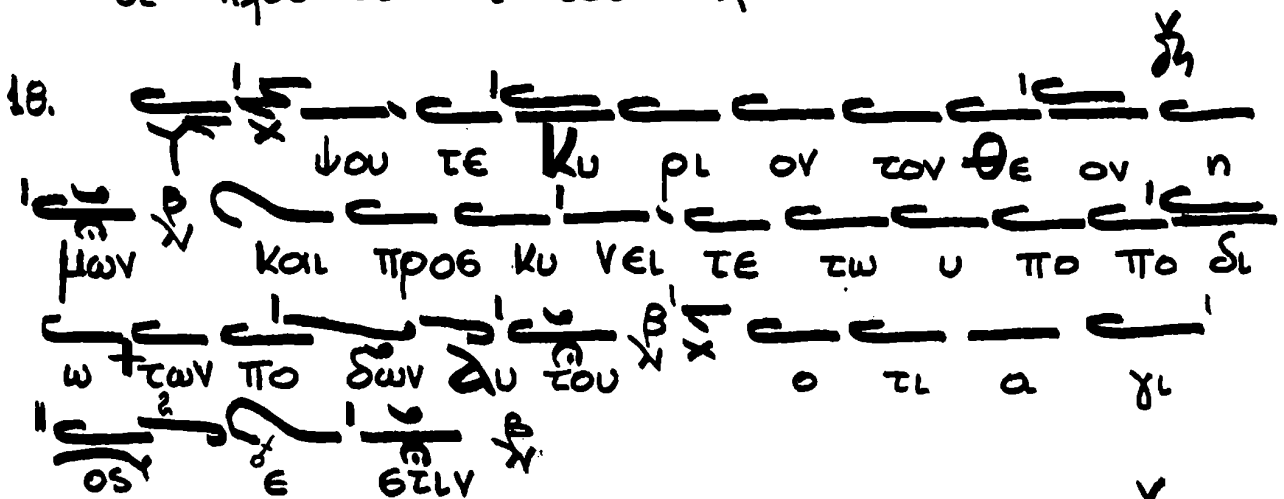 18. Υ ψου τε Κυ ρι ον τον Θε ον η
μων και προσ κυ νει τε τω υ πο πο δι
ω των πο δων αυ του ο τι α γι
ος ε στιν